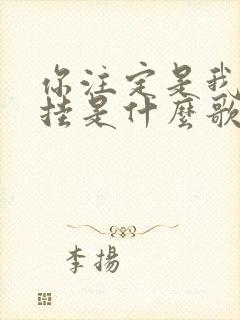 你注定是我
挂是什麼歌
李揚